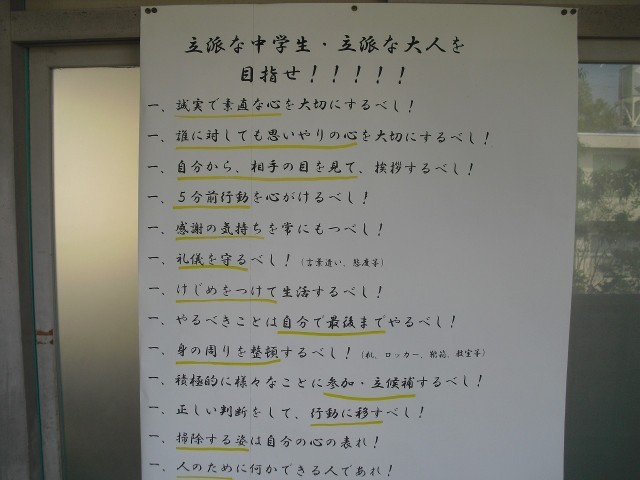 立派な中学生・立派な大人を
目指せ！！！！！
一、誠実で素直な心を大切にするべし！
一、誰に対しても思いやりの心を大切にするべし！
一、自分から、相手の目を見て、挨拶するべし！
一、５分前行動を心がけるべし！
一、感謝の気持ちを常にもつべし！
一、礼儀を守るべし！（言葉遣い、態度等）
一、けじめをつけて生活するべし！
一、やるべきことは自分で最後までやるべし！
一、身の周りを整頓するべし！（机、ロッカー、鞄箱、教室等）
一、積極的に様々なことに参加・立候補するべし！
一、正しい判断をして、行動に移すべし！
一、掃除する姿は自分の心の表れ！
一、人のために何かできる人であれ！